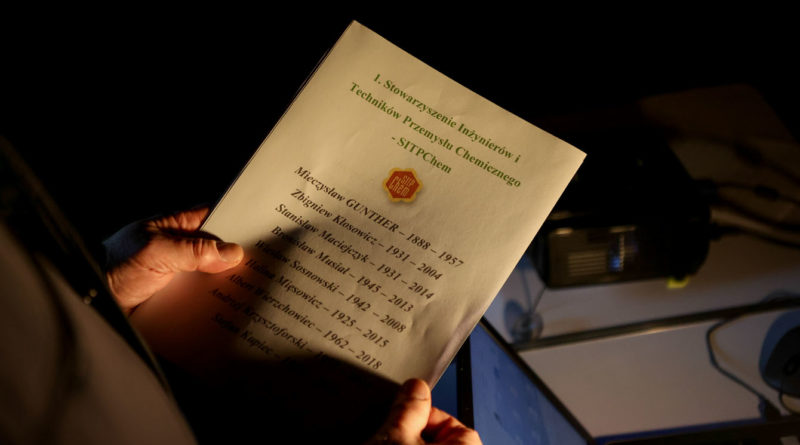 1. Stowarzyszenie Inżynierów i
Techników Przemysłu Chemicznego
- SITPChem
SITP
CHEM
Mieczysław GUNTHER – 1888 – 1957
Zbigniew Kłosowicz – 1931 – 2004
Stanisław Maciejczyk – 1931 – 2014
Bronisław Musiał – 1945 – 2013
Wacław Sosnowski – 1942 – 2008
Halina Mięsowicz – 1925 – 2015
Albert Wierzchowiec – 1962 – 2018
Andrzej Krzysztoforski –
Stefan Kupiec